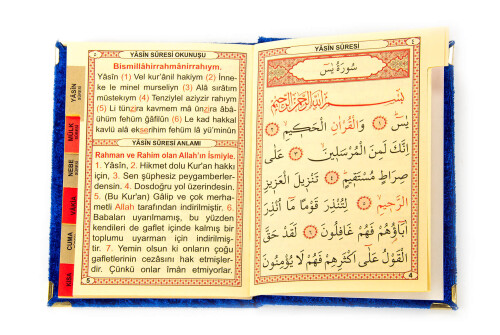 YÂSÎN SÛRESİ OKUNUŞU
Bismillâhirrahmânirrahıym.
Yâsîn (1) Vel kur'ânil hakiym (2) İnne-
ke le minel murseliyn (3) Alâ sırâtım
müstekıym (4) Tenziylel aziyzir rahıym
(5) Li tünzira kavmem mâ ünzira âbâ-
ühüm fehüm ğâfilûn (6) Le kad hakkal
kavlü alâ ekserihim fehüm lâ yü'minûn
YÂSÎN SÛRESİ ANLAMI
Rahman ve Rahim olan Allah'ın İsmiyle.
1. Yâsîn, 2. Hikmet dolu Kur'an hakkı
için, 3. Sen şüphesiz peygamberler-
densin. 4. Dosdoğru yol üzerindesin.
5. (Bu Kur'an) Gâlip ve çok merha-
metli Allah tarafından indirilmiştir. 6.
Babaları uyarılmamış, bu yüzden
kendileri de gaflet içinde kalmış bir
toplumu uyarman için indirilmiş-
tir. 7. Yemin olsun ki onların çoğu
gafletlerinin cezasını hak etmişler-
dir. Çünkü onlar îmân etmiyorlar.
5
YÂSÎN
SÛRESİ
MÜLK
NEBE
VÂKIA
CUMA
KISA
YÂSÎN SÛRESİ
سُورَةُ يٰسٓ
بِسْمِ اللّٰهِ الرَّحْمٰنِ الرَّحِيمِ
يٰسٓ ﴿١﴾ وَالْقُرْاٰنِ الْحَكِيمِ ﴿٢﴾
اِنَّكَ لَمِنَ الْمُرْسَلِينَ ﴿٣﴾ عَلٰى
صِرَاطٍ مُسْتَقِيمٍ ﴿٤﴾ تَنْزِيلَ الْعَزِيزِ
الرَّحِيمِ ﴿٥﴾ لِتُنْذِرَ قَوْمًا مَا اُنْذِرَ
اٰبَاؤُهُمْ فَهُمْ غَافِلُونَ ﴿٦﴾ لَقَدْ حَقَّ
الْقَوْلُ عَلٰى اَكْثَرِهِمْ فَهُمْ لَا يُؤْمِنُونَ
4